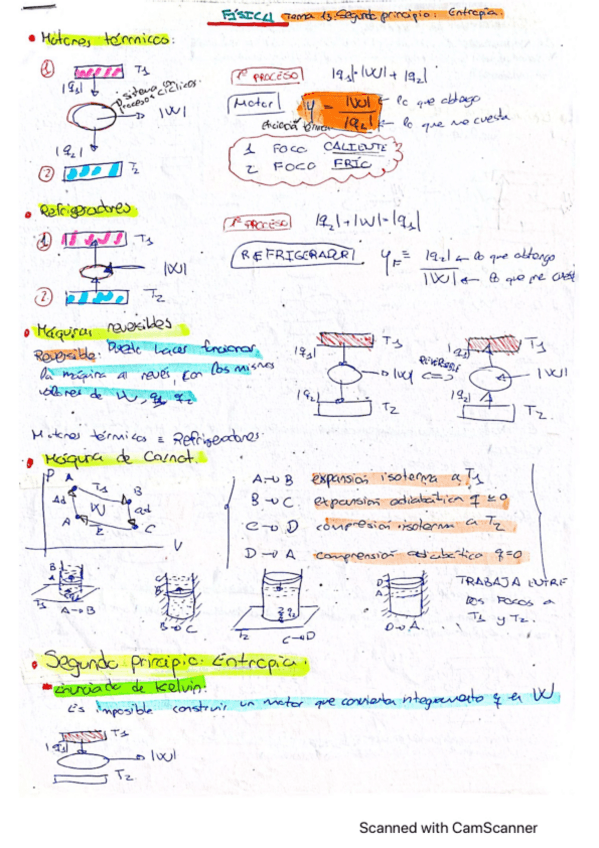 FÍSICA Tema 13. Segundo principio: Entropía
Motores térmicos:
1 T1
|q1|
sistema
Procesos cíclicos.
|W|
|q2|
2 T2
1er PROCESO |q1|=|W|+|q2|
Motor η = |W| ← lo que obtengo
|q1| ← lo que me cuesta
1 FOCO CALIENTE
2 FOCO FRÍO
Refrigeradores
1 T1
|W|
2 T2
1er PROCESO |q2|+|W|=|q1|
REFRIGERADOR ηF ≡ |q2| ← lo que obtengo
|W| ← lo que me cuesta
Máquinas reversibles
Reversible: Puede hacer funcionar
la máquina al revés, con los mismos
valores de W, q1, q2
T1 T1
|q1| |q2|
|W| REVERSIBLE |W|
|q2| |q2|
T2 T2.
Motores térmicos ≡ Refrigeradores
Máquina de Carnot.
P A T1 B
Ad W ad
A 2 C
V
A→B expansión isoterma a T1
B→C expansión adiabática q=0
C→D compresión isoterma a T2
D→A comprensión adiabática q=0
B
A
T1 A→B
C
B
B→C
T2 C→D
D
A
D→A.
TRABAJA ENTRE
DOS FOCOS a
T1 y T2.
Segundo principio: Entropía.
enunciado de Kelvin:
Es imposible construir un motor que convierta integramente q en W
T1
|q1|
|W|
T2
Scanned with CamScanner